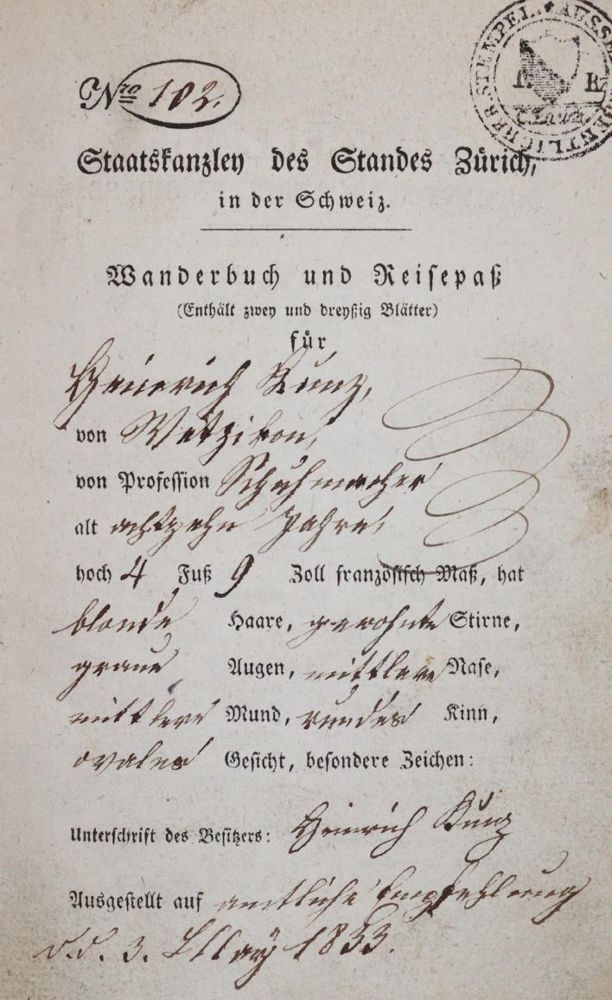 Nro 102.
STEMPEL. AUSSE
R
Staatskanzley des Standes Zürich,
in der Schweiz.
Wanderbuch und Reisepaß
(Enthält zwey und dreyßig Blätter)
für
Heinrich Kunz,
von Wetzikon,
von Profession Schuhmacher
alt achtzehn Jahre,
hoch 4 Fuß 9 Zoll französisch Maß, hat
blonde Haare, gewohnte Stirne,
graue Augen, mittlere Nase,
mittlere Mund, rundes Kinn,
ovales Gesicht, besondere Zeichen:
Unterschrift des Besitzers: Heinrich Kunz
Ausgestellt auf amtliche Empfehlung
d.d. 3. May 1833.